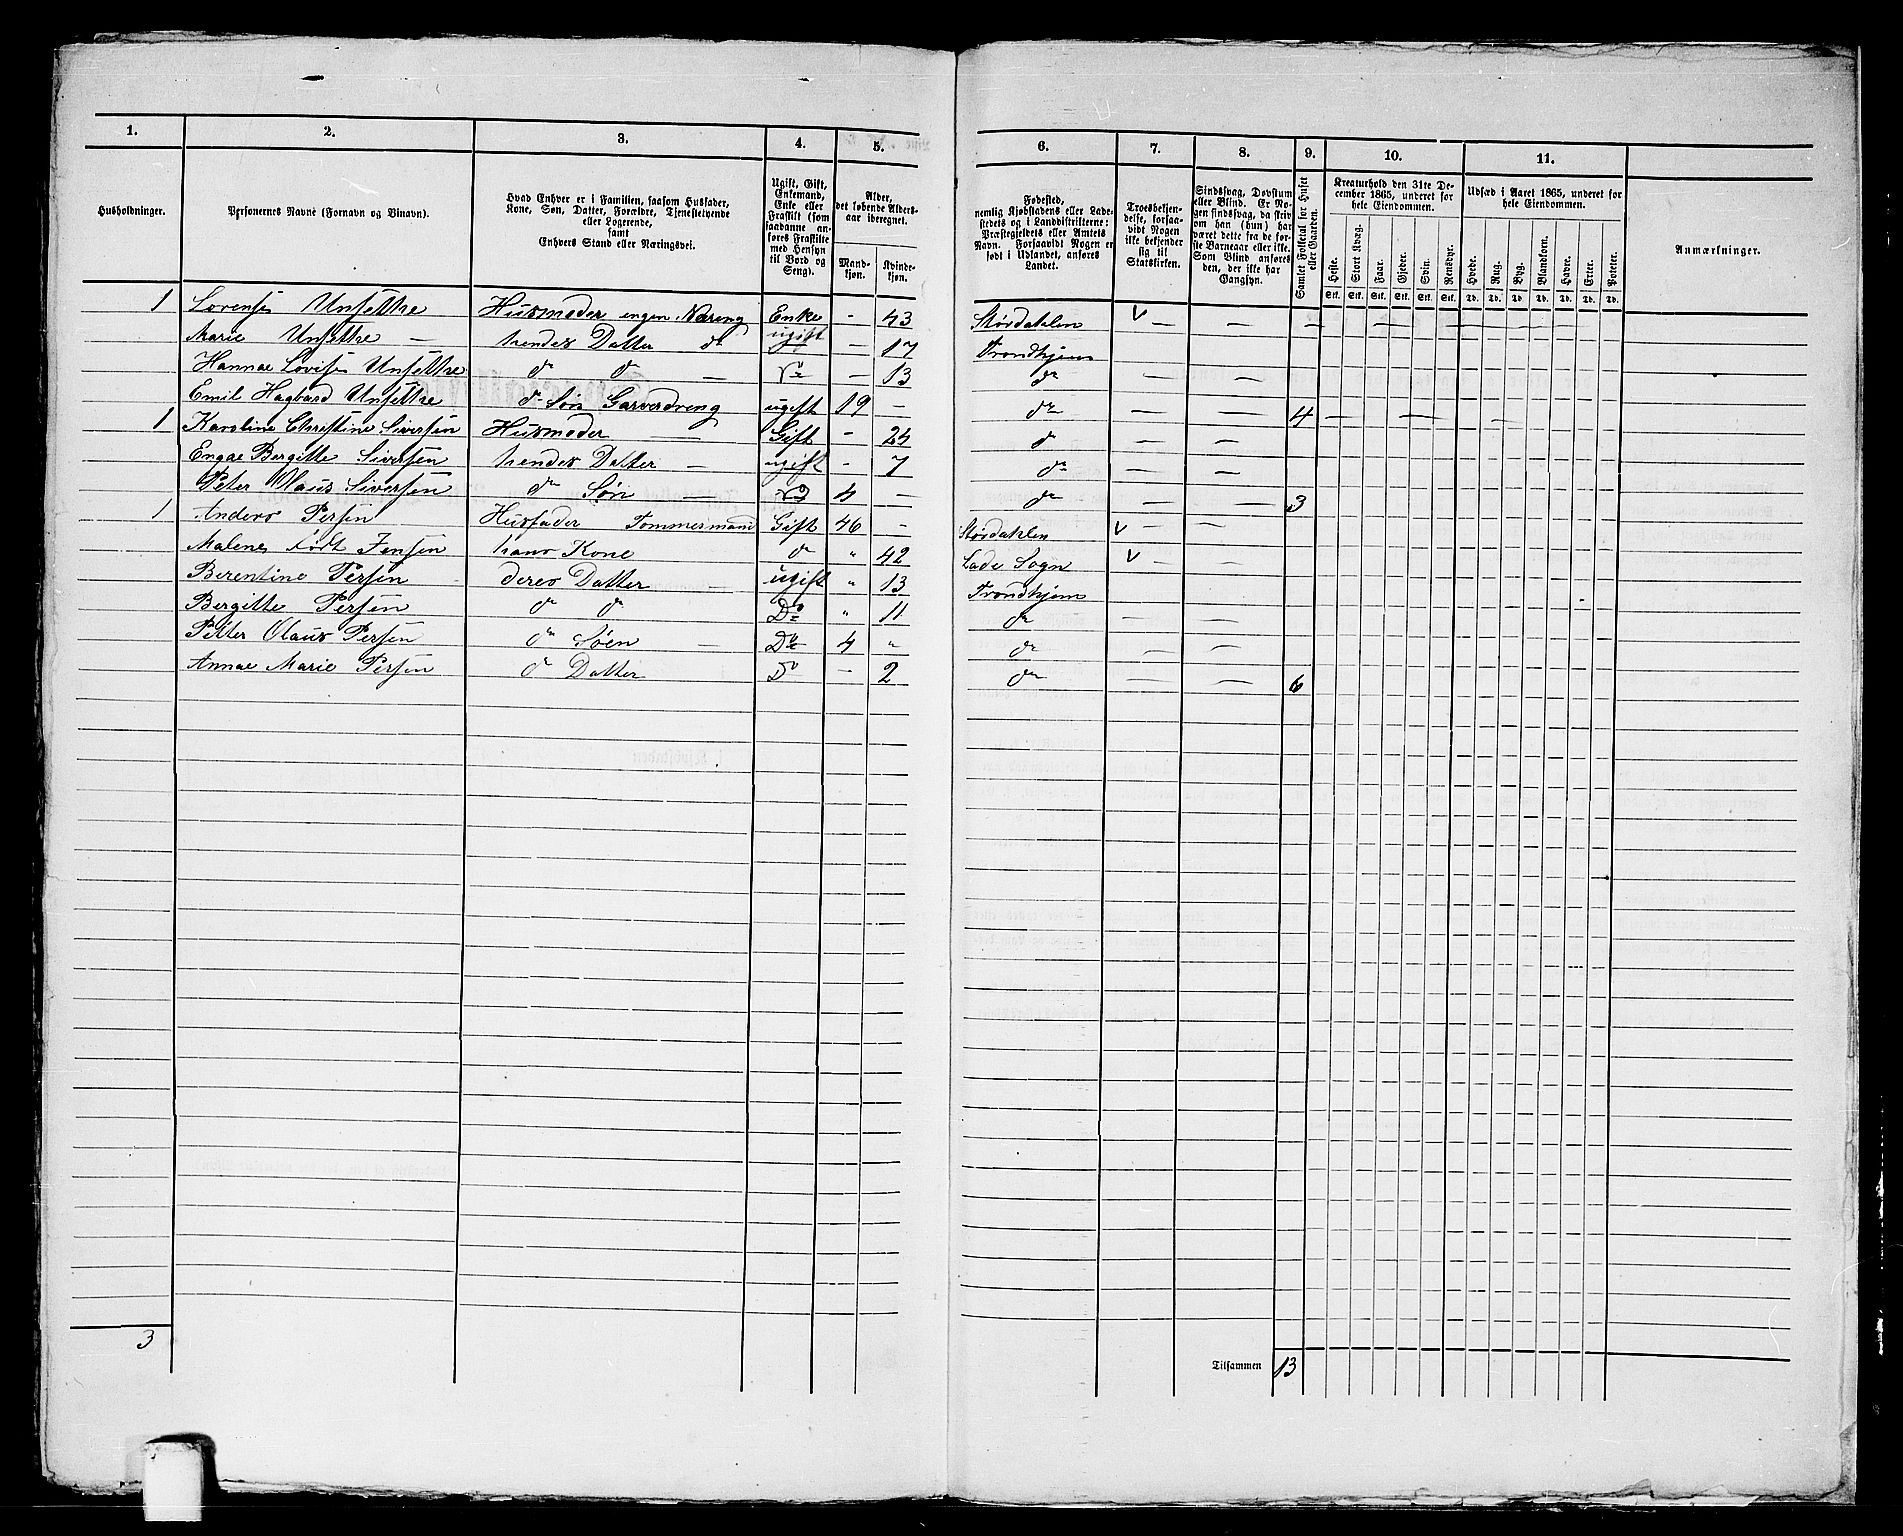 1. 2. 3. 4. 5. 6. 7. 8. 9. 10. 11.
Husholdninger.
Personernes Navne (Fornavn og Tilnavn).
Hvad Enhver er i Familien, saasom Husfader, Kone, Søn, Datter, Forældre, Tjenestetyende eller Logerende, samt Enhvers Stand eller Næringsvei.
Ugift, Gift, Enkemand, Enke eller Fraskilt (som saadanne anføres Fraskilte med Hensyn til Bord og Seng).
Alder, det løbende Alders-aar iberegnet.
Mandkjøn. Kvindekjøn.
Fødested, nemlig Kjøbstadens eller Ladestedets og i Landdistrikterne: Præstegjeldets eller Amtets Navn. Forsaavidt Nogen er født i Udlandet, anføres Landet.
Troesbekjendelse, forsaavidt Nogen ikke bekjender sig til Statskirken.
Sindssvag, Døvstum eller Blind. Er Nogen sindssvag, da skrives om han (hun) har været dette fra de første Barneaar eller ikke. Som Blind anføres den, der ikke har Gangsyn.
Samlet Folketal for Huset eller Gaarden.
Kreaturhold den 31te December 1865, underet for hele Eiendommen.
Heste. Stort Kvæg. Faar. Gjeder. Svin. Rensdyr.
Stk. Stk. Stk. Stk. Stk. Stk.
Udsæd i Aaret 1865, underet for hele Eiendommen.
Hvede. Rug. Byg. Blandkorn. Havre. Erter. Poteter.
Td. Td. Td. Td. Td. Td. Td.
Anmærkninger.
1 Lorense Unsettre Husmoder ingen Næring Enke - 43 Størdahlen V
Marie Unsettre — hendes Datter do ugift — 17 Trondhjem
Hannae Lovise Unsettre do do — Do — 13 do
Emil Hagbard Unsettre do Søn Garverdreng ugift 19 — do 4
1 Karoline Christine Siversen Husmoder — Gift - 24 do
Engae Bergitte Siversen hendes Datter — ugift - 7 do
Peter Olaus Siversen do Søn — Do 4 — do 3
1 Anders Persen Husfader Tommermand Gift 46 - Størdahlen V
Malene født Jensen hans Kone do " 42 Lade Sogn V
Berentine Persen deres Datter ugift " 13 Trondhjem
Bergitte Persen do do Do " 11 do
Petter Olaus Persen do Søen — Do 4 " do
Annae Marie Persen do Datter Do - 2 do 6
3
Tilsammen 13